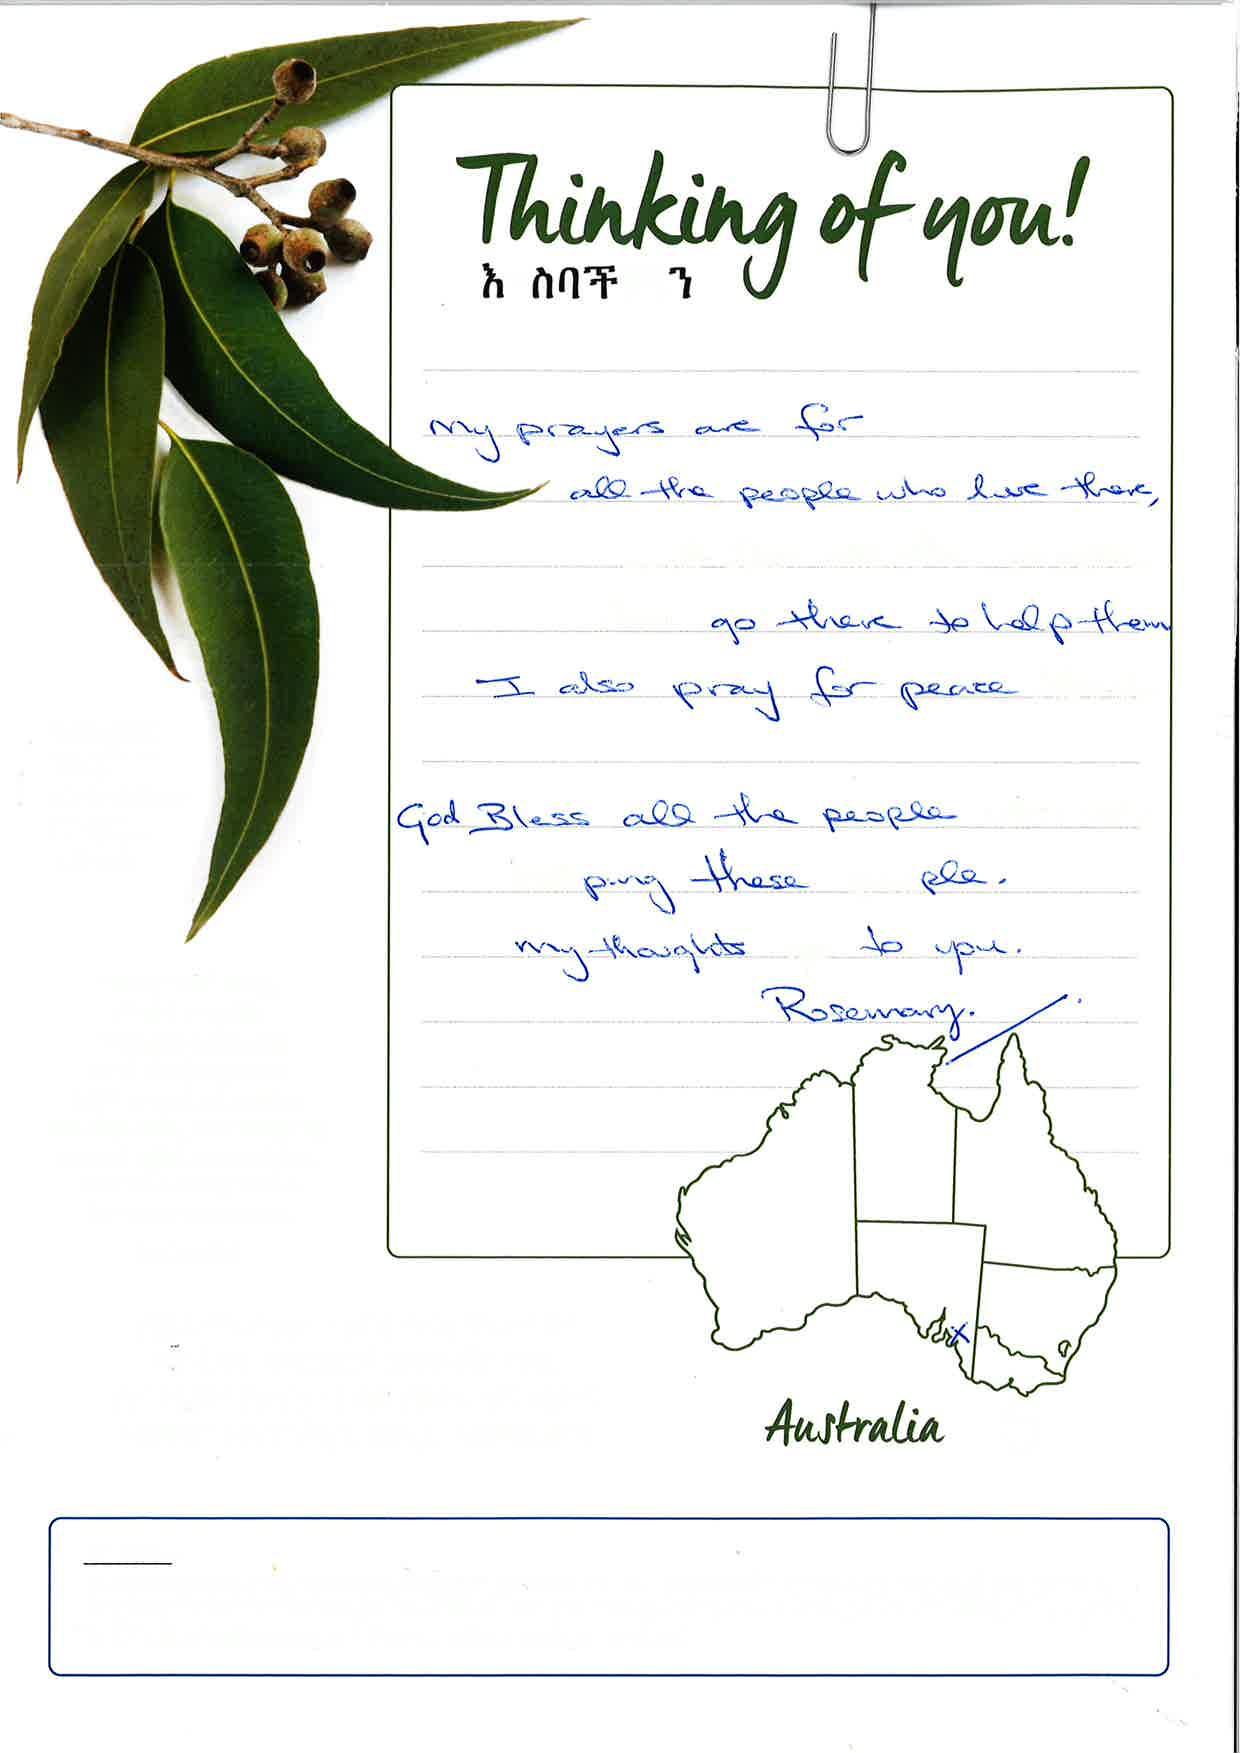 Thinking of you!
እ ስባች ን
My prayers are for
all the people who live there,
go there to help them
I also pray for peace
God Bless all the people
these ple.
my thoughts to you.
Rosemary.
x
Australia